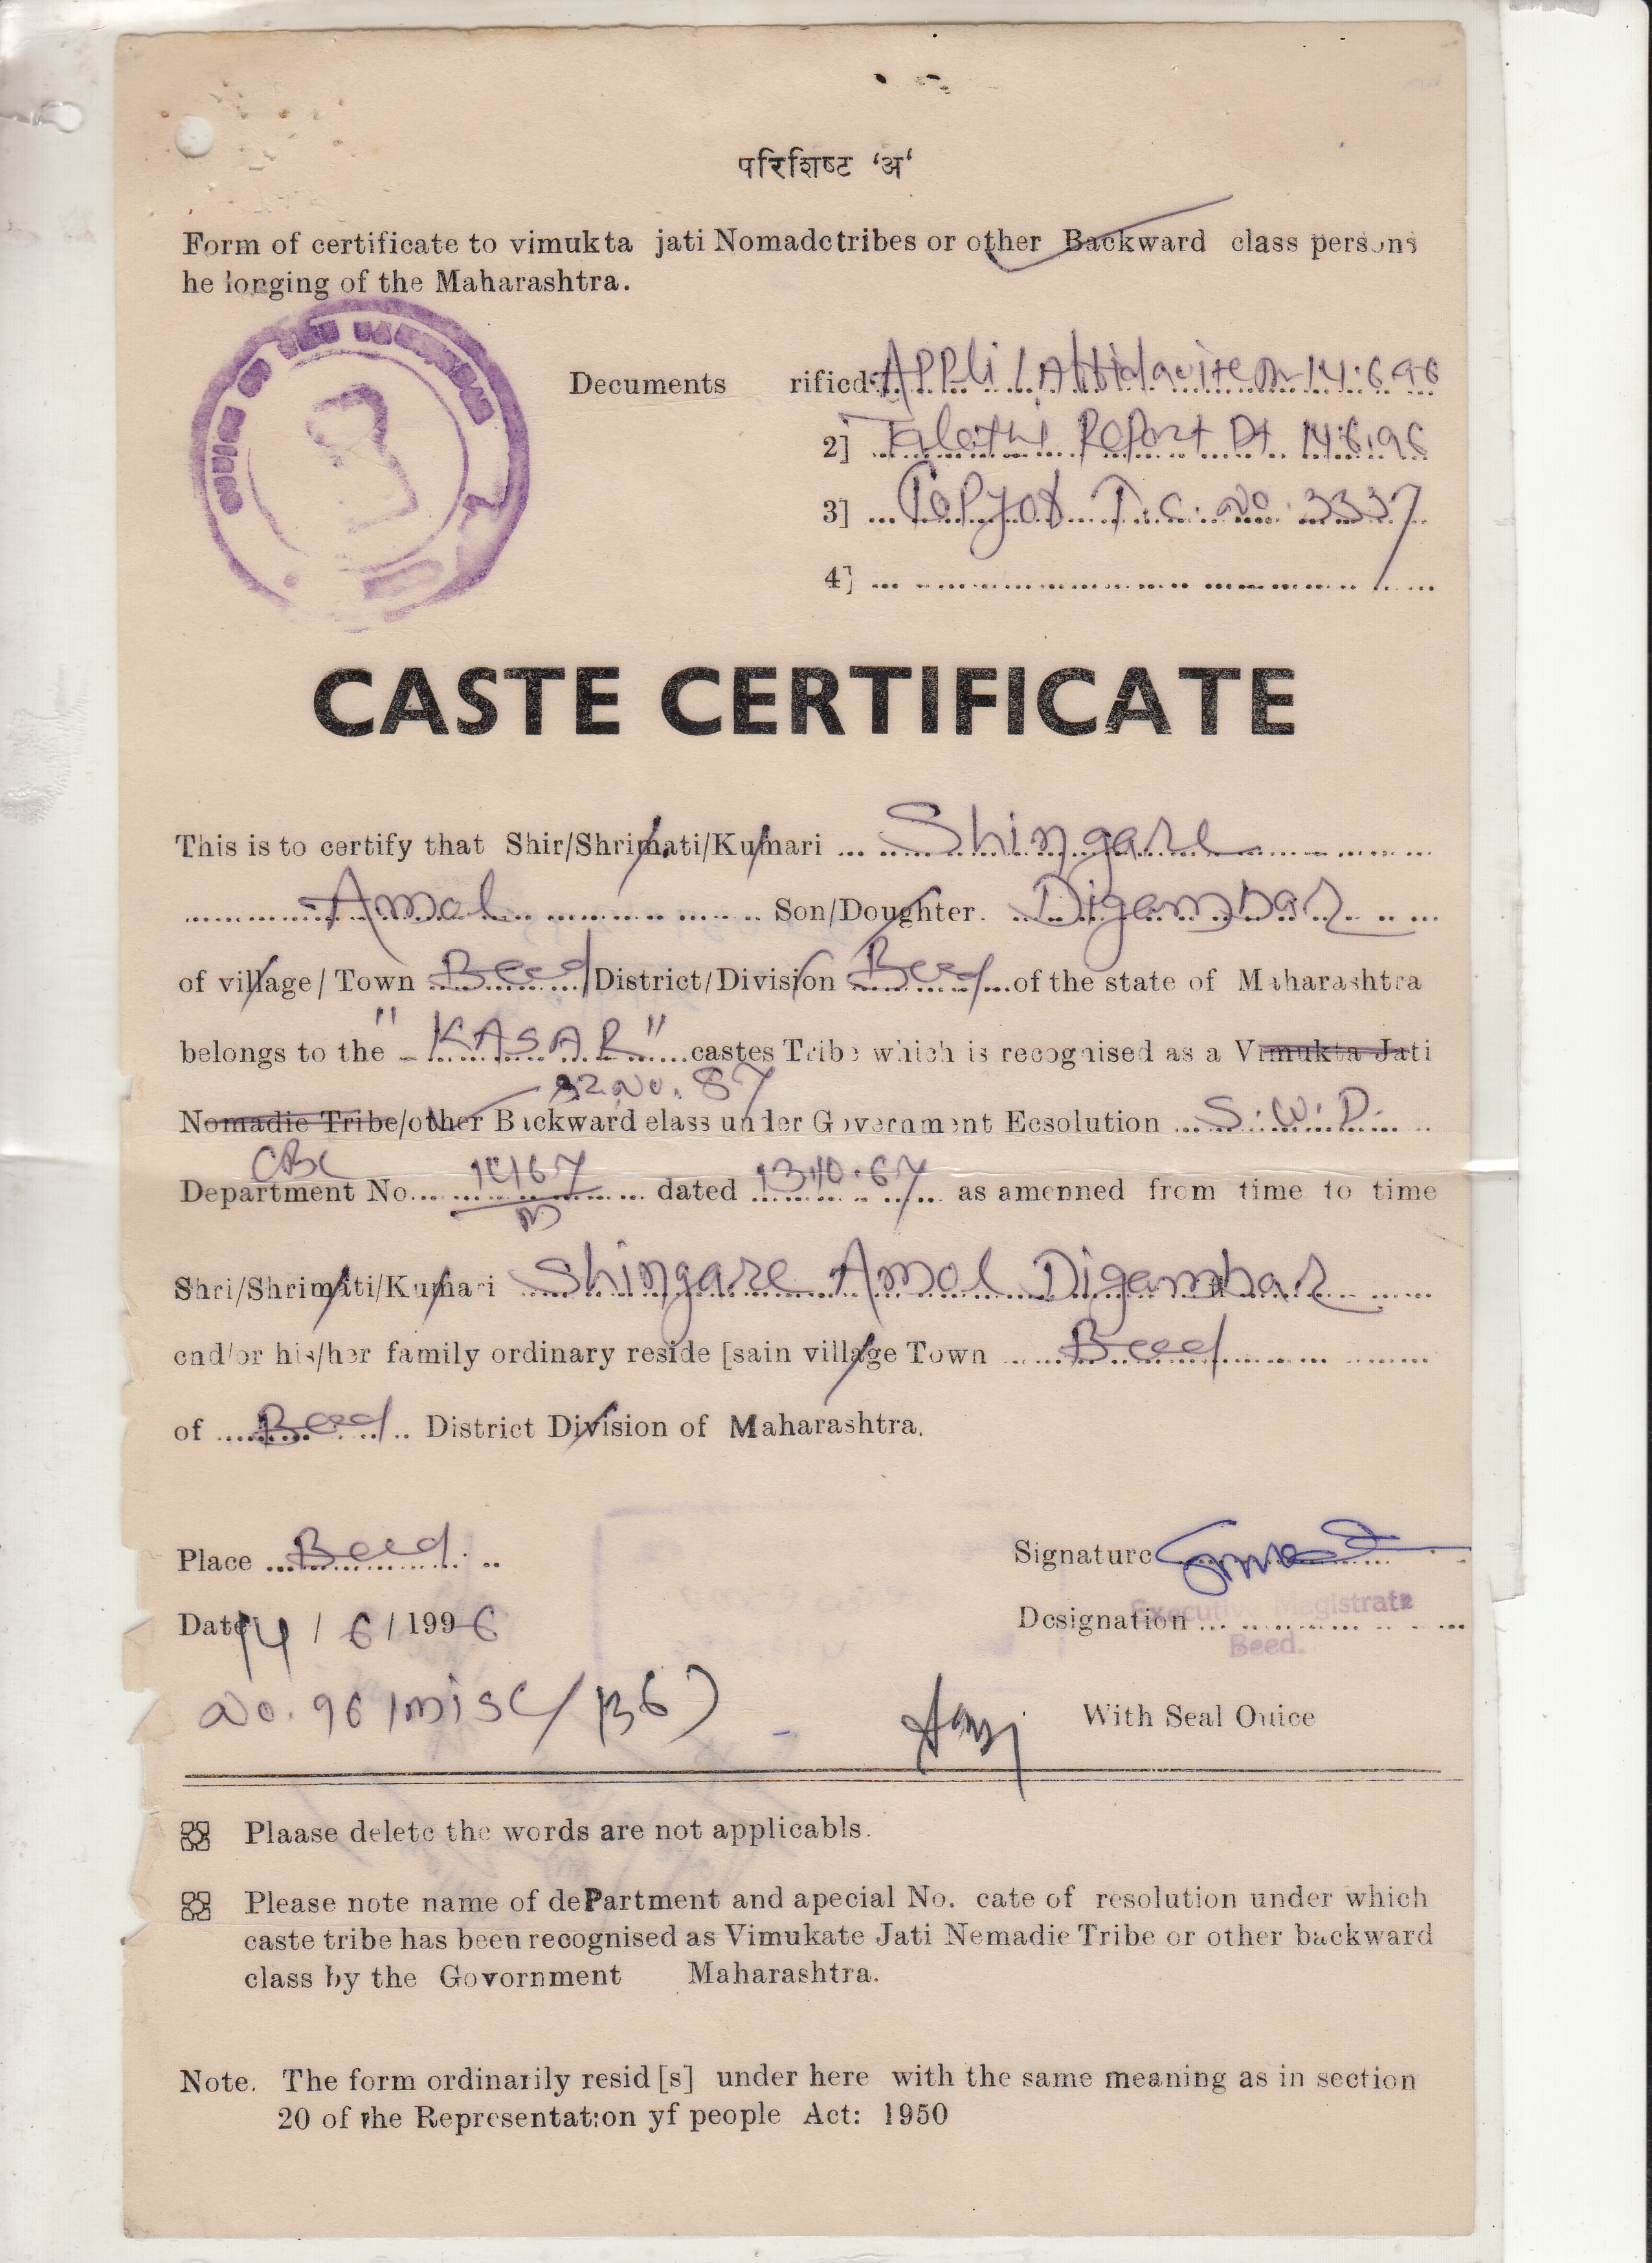 परिशिष्ट 'अ'
Form of certificate to vimukta jati Nomadctribes or other Backward class persons
he longing of the Maharashtra.
Decuments rificd Appli / Affidavite Dt 14.6.96
2] Talathi Report Dt 14.6.96
3] Copy of T.C. No. 3337
4]
CASTE CERTIFICATE
This is to certify that Shir/Shrimati/Kumari Shingare
Amol Son/Doughter. Digambar
of village / Town Beed District/Division Beed of the state of Maharashtra
belongs to the "KASAR" castes Tribe which is recognised as a Vimukta Jati
Sr. No. 87
Nomadie Tribe/other Backward elass under Government Ecsolution S.W.D.
CBC
Department No. 1467 dated 13.10.67 as amenned from time to time
M
Shri/Shrimati/Kumari Shingare Amol Digambar
end/or his/her family ordinary reside [sain village Town Beed
of Beed District Division of Maharashtra.
Place Beed Signature
Date 14 / 6 / 1996 Designation Executive Magistrate
Beed.
No. 96/misc/ With Seal Ouice
Plaase delete the words are not applicabls.
Please note name of dePartment and apecial No. cate of resolution under which
caste tribe has been recognised as Vimukate Jati Nemadie Tribe or other backward
class by the Govornment Maharashtra.
Note. The form ordinarily resid [s] under here with the same meaning as in section
20 of the Representation yf people Act: 1950